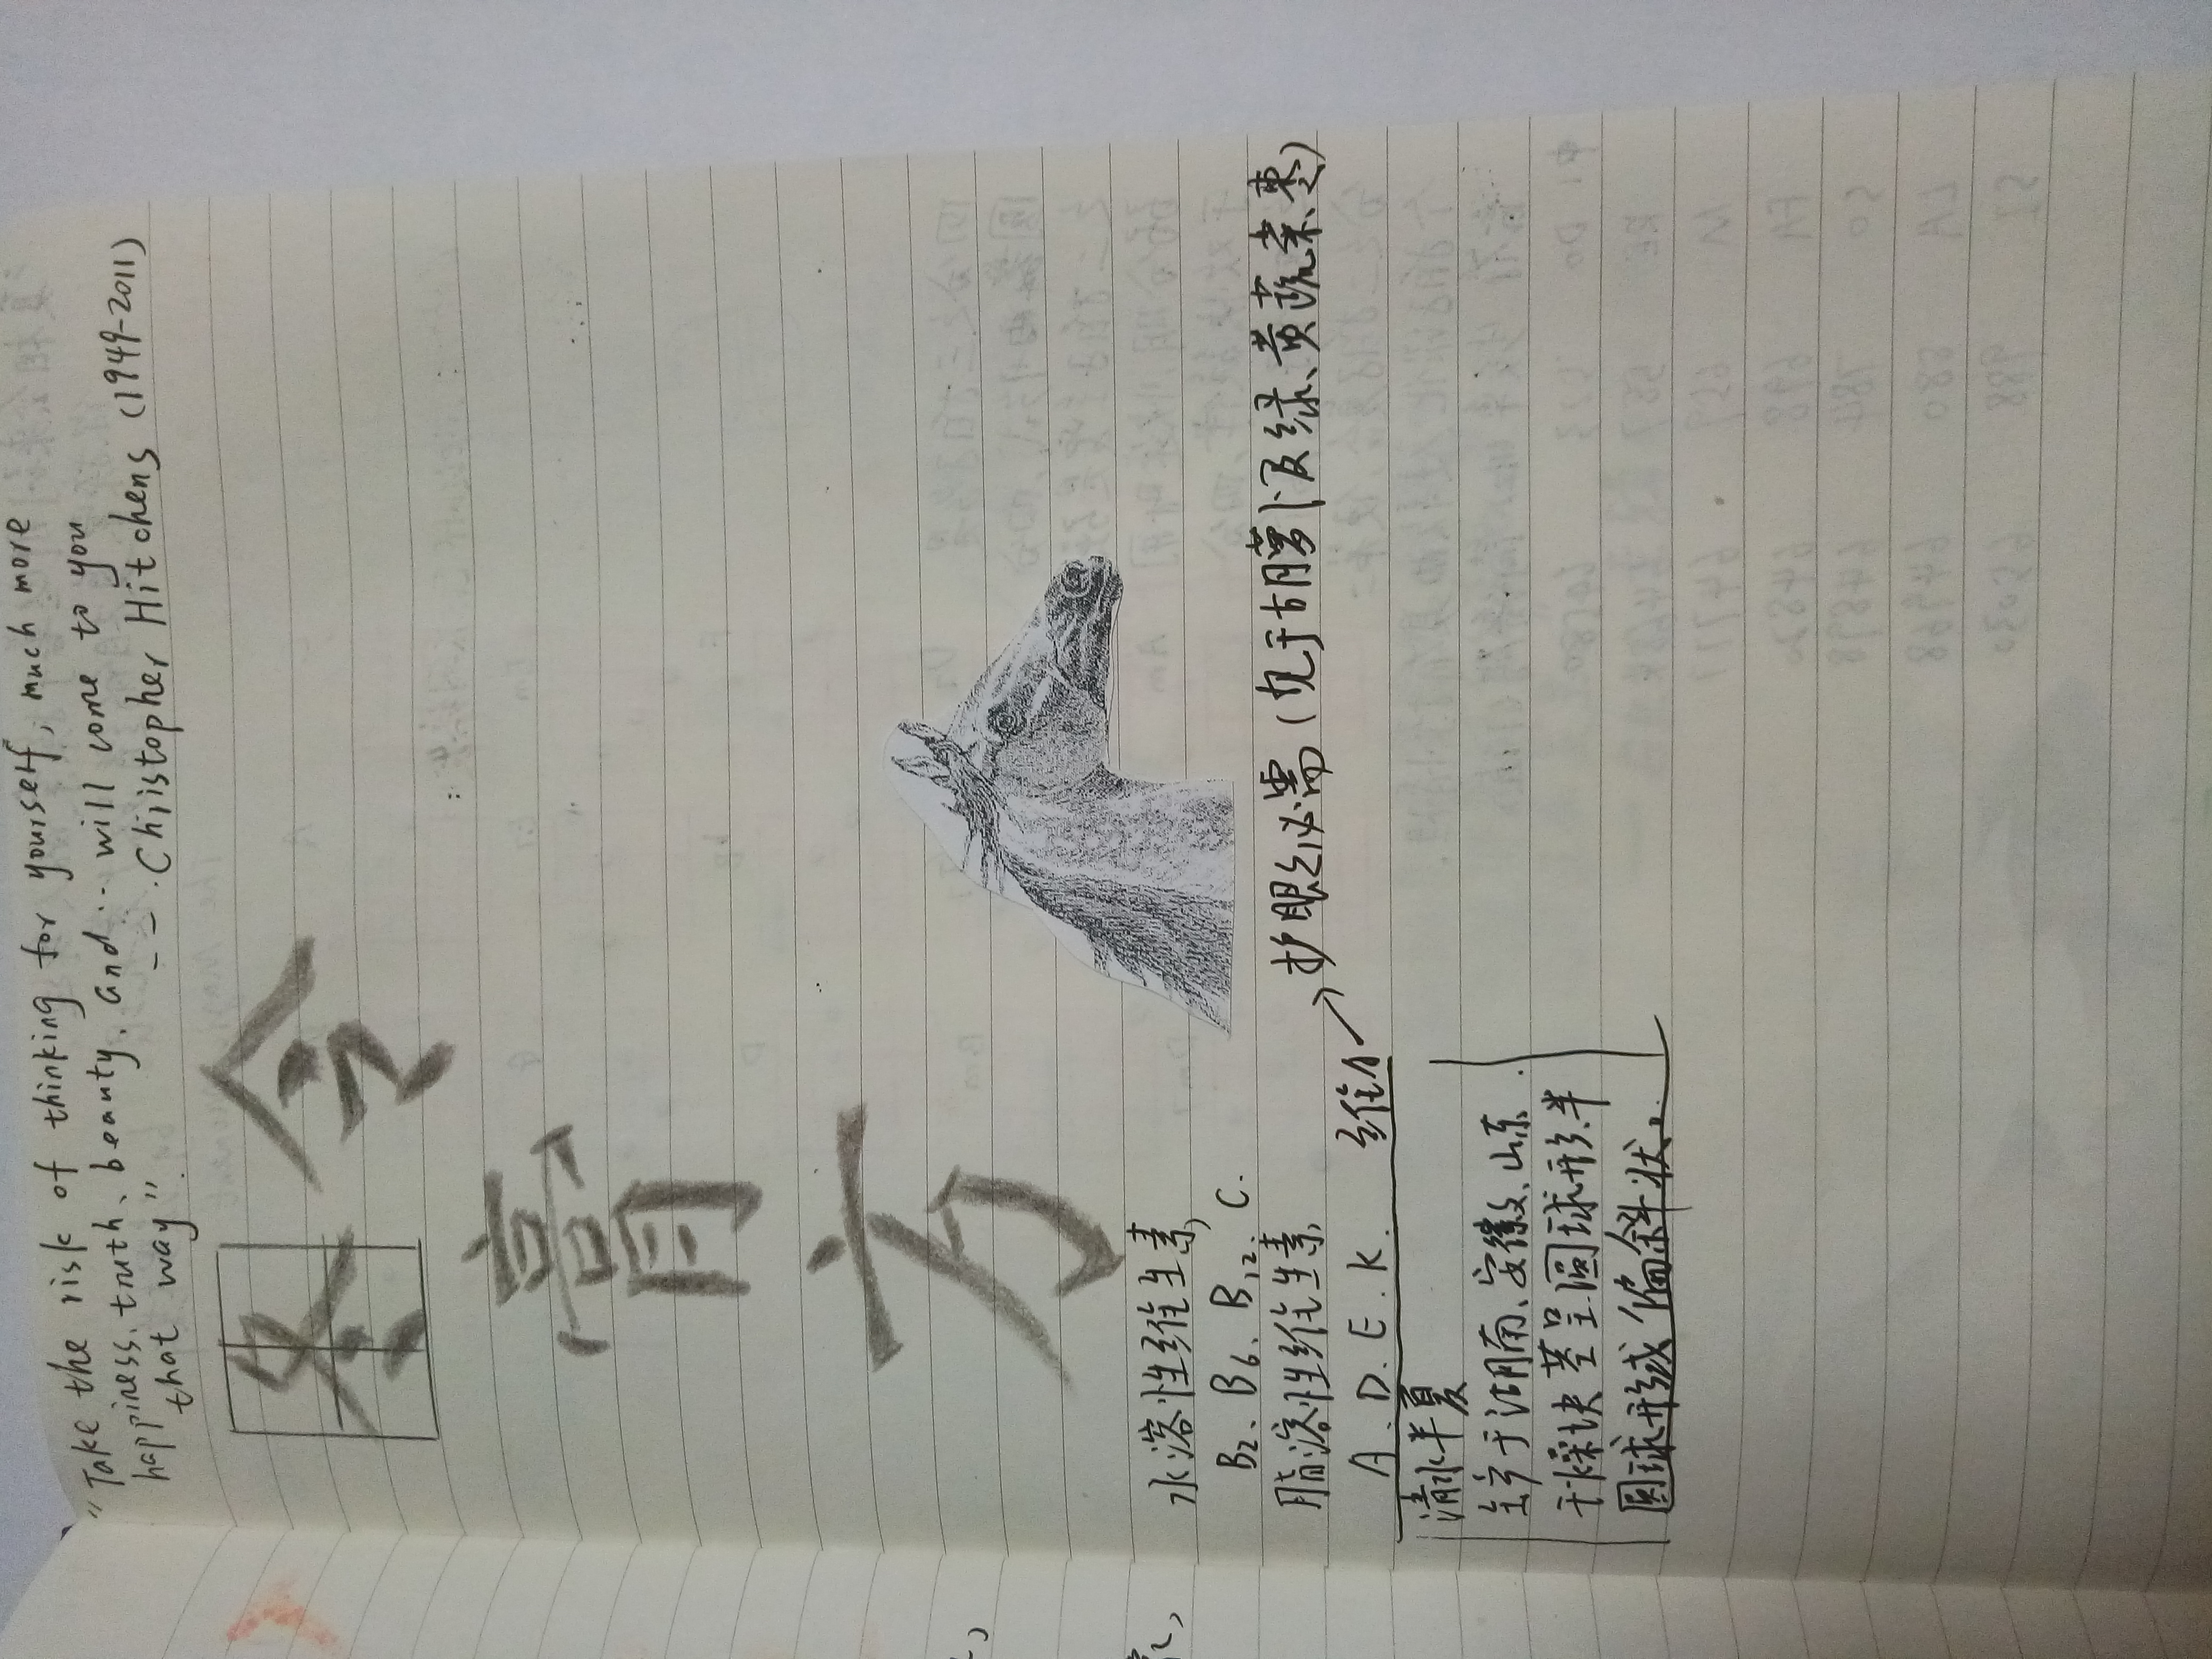 "Take the risk of thinking for yourself, much more
happiness、truth、beauty、and... will come to you
that way"
-- Christopher Hitchens (1949-2011)
冬 令
膏
方
水溶性维生素,
B₂、B₆、B₁₂. C.
脂溶性维生素,
A. D. E. K. 维A → 护眼必需(见于胡萝卜及绿、黄蔬菜、枣)
清水半夏
于湖南、安徽、山东.
干燥块茎呈圆球形.半
圆球形或偏斜状。